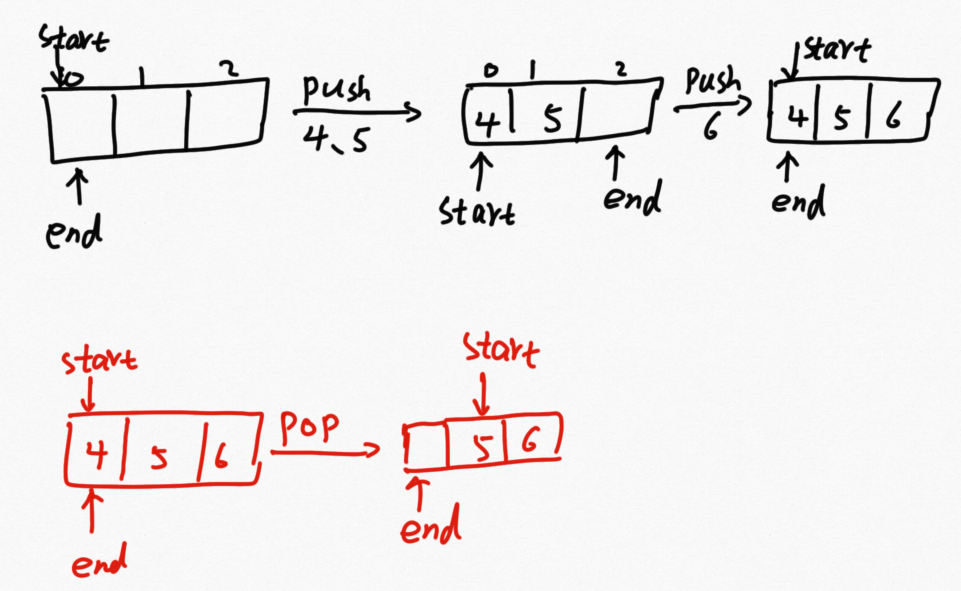 start
0 1 2
end
push
4、5
0 1 2
4 5
start
end
push
6
start
4 5 6
end
start
4 5 6
end
pop
start
5 6
end